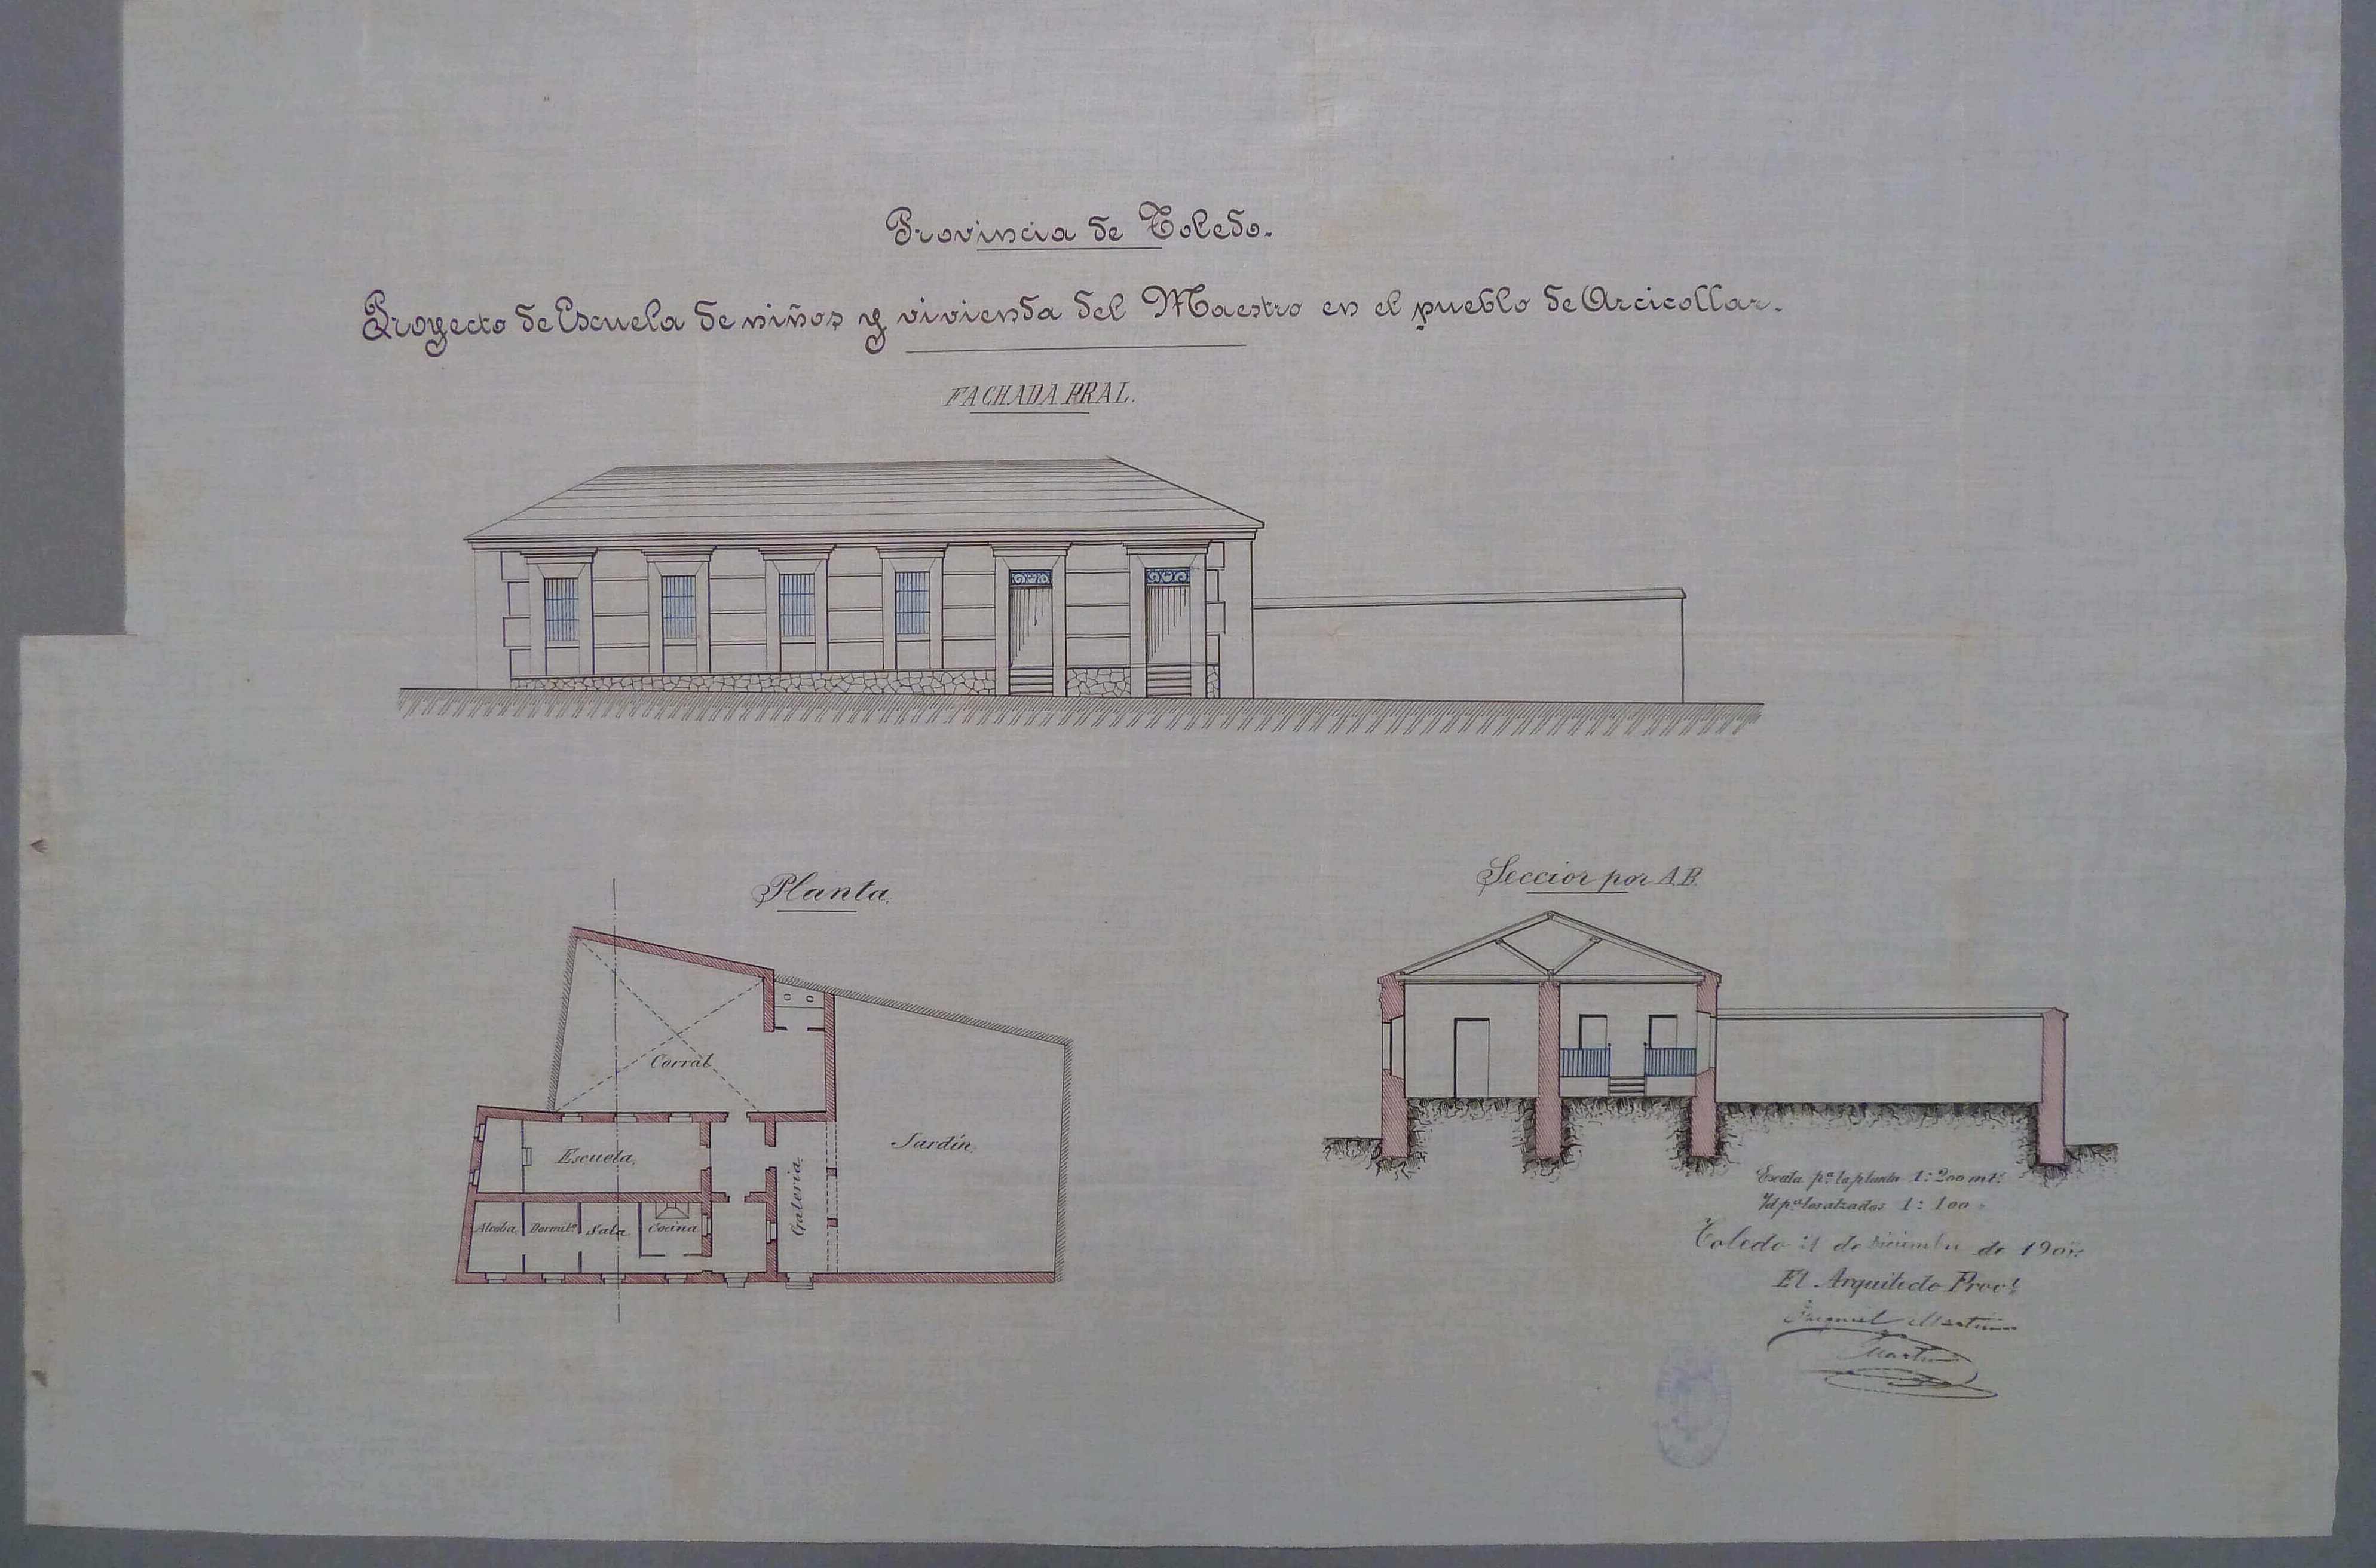 Provincia de Toledo.
Proyecto de Escuela de niños y vivienda del Maestro en el pueblo de Arcicollar.
FACHADA PRAL.
Planta.
Seccion por A.B.
Corral
Escuela.
Jardín.
Galeria.
Alcoba.
Dormit.º
Sala
Cocina
Escala p.ª la planta 1:200 mt.ˢ
Id p.ª los alzados 1:100
Toledo de Diciembre de
El Arquitecto Prov.l
Ezequiel Martin
Martin